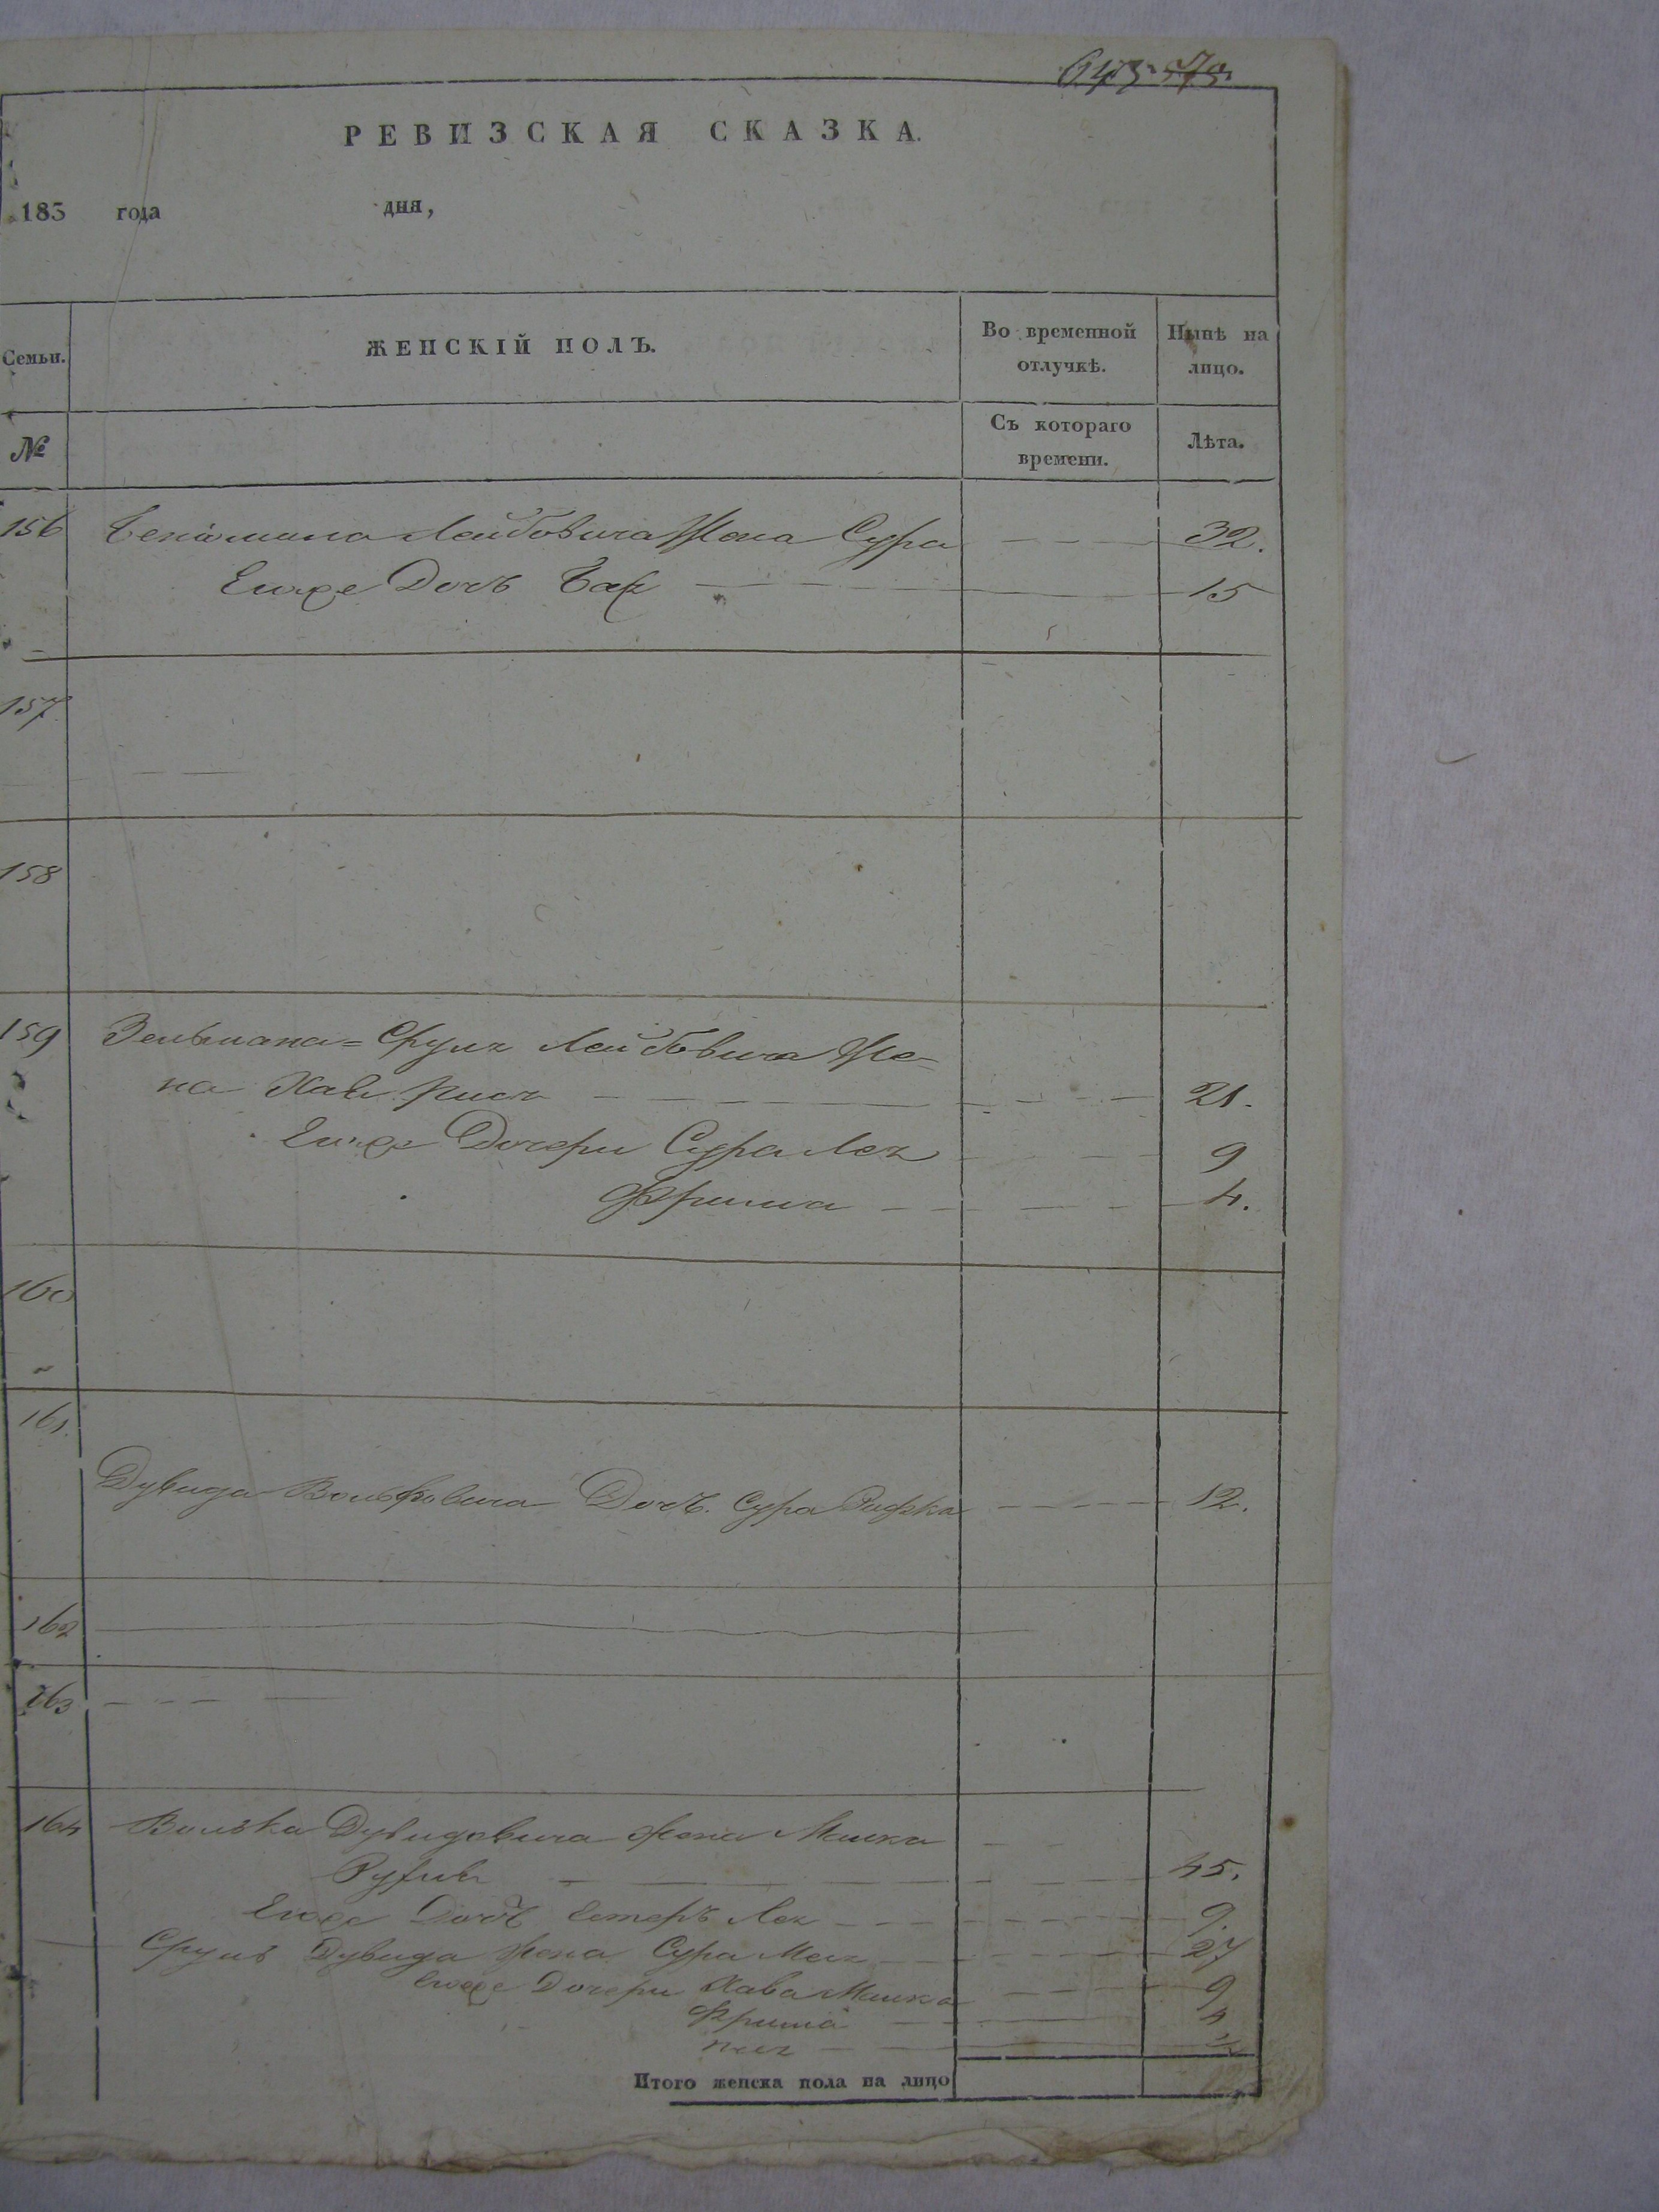 РЕВИЗСКАЯ СКАЗКА.
183 года дня,
Семьи. ЖЕНСКІЙ ПОЛЪ. Во временной отлучкѣ. Нынѣ на лицо.
№ Съ котораго времени. Лѣта.
156 Беніомина Лейбовича Жена Сура 32.
Его же Дочь 15
157
158
159 Зельмана=Сруль Лейбовича Же-
на Хая 21.
Его же Дочери Сура Лея 9
Фрима 4.
160
161.
Дувида Вольфовича Дочь. Сура Рифка 12.
162
163
164 Волька Дувидовича жена Малка
45.
Его же Дочь Естеръ Лея 9.
Сруль Дувида жена Сура 27
его же Дочери Хава Малка 9
Фрима 4
Итого женска пола на лицо